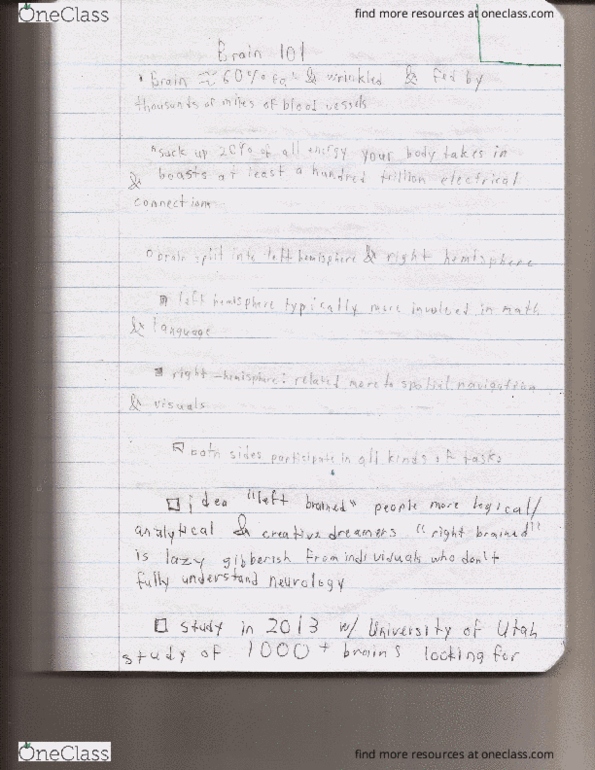 OneClass
find more resources at oneclass.com
Brain 101
Brain ≈ 60% fat & wrinkled & fed by
thousands of miles of blood vessels
suck up 20% of all energy your body takes in
& boasts at least a hundred trillion electrical
connections
brain split into left hemisphere & right hemisphere
left hemisphere typically more involved in math
& language
right-hemisphere: related more to spatial navigation
& visuals
both sides participate in all kinds of tasks
idea "left brained" people more logical/
analytical & creative dreamers "right brained"
is lazy gibberish from individuals who don't
fully understand neurology
study in 2013 w/ University of Utah
study of 1000+ brains looking for
OneClass
find more resources at oneclass.com